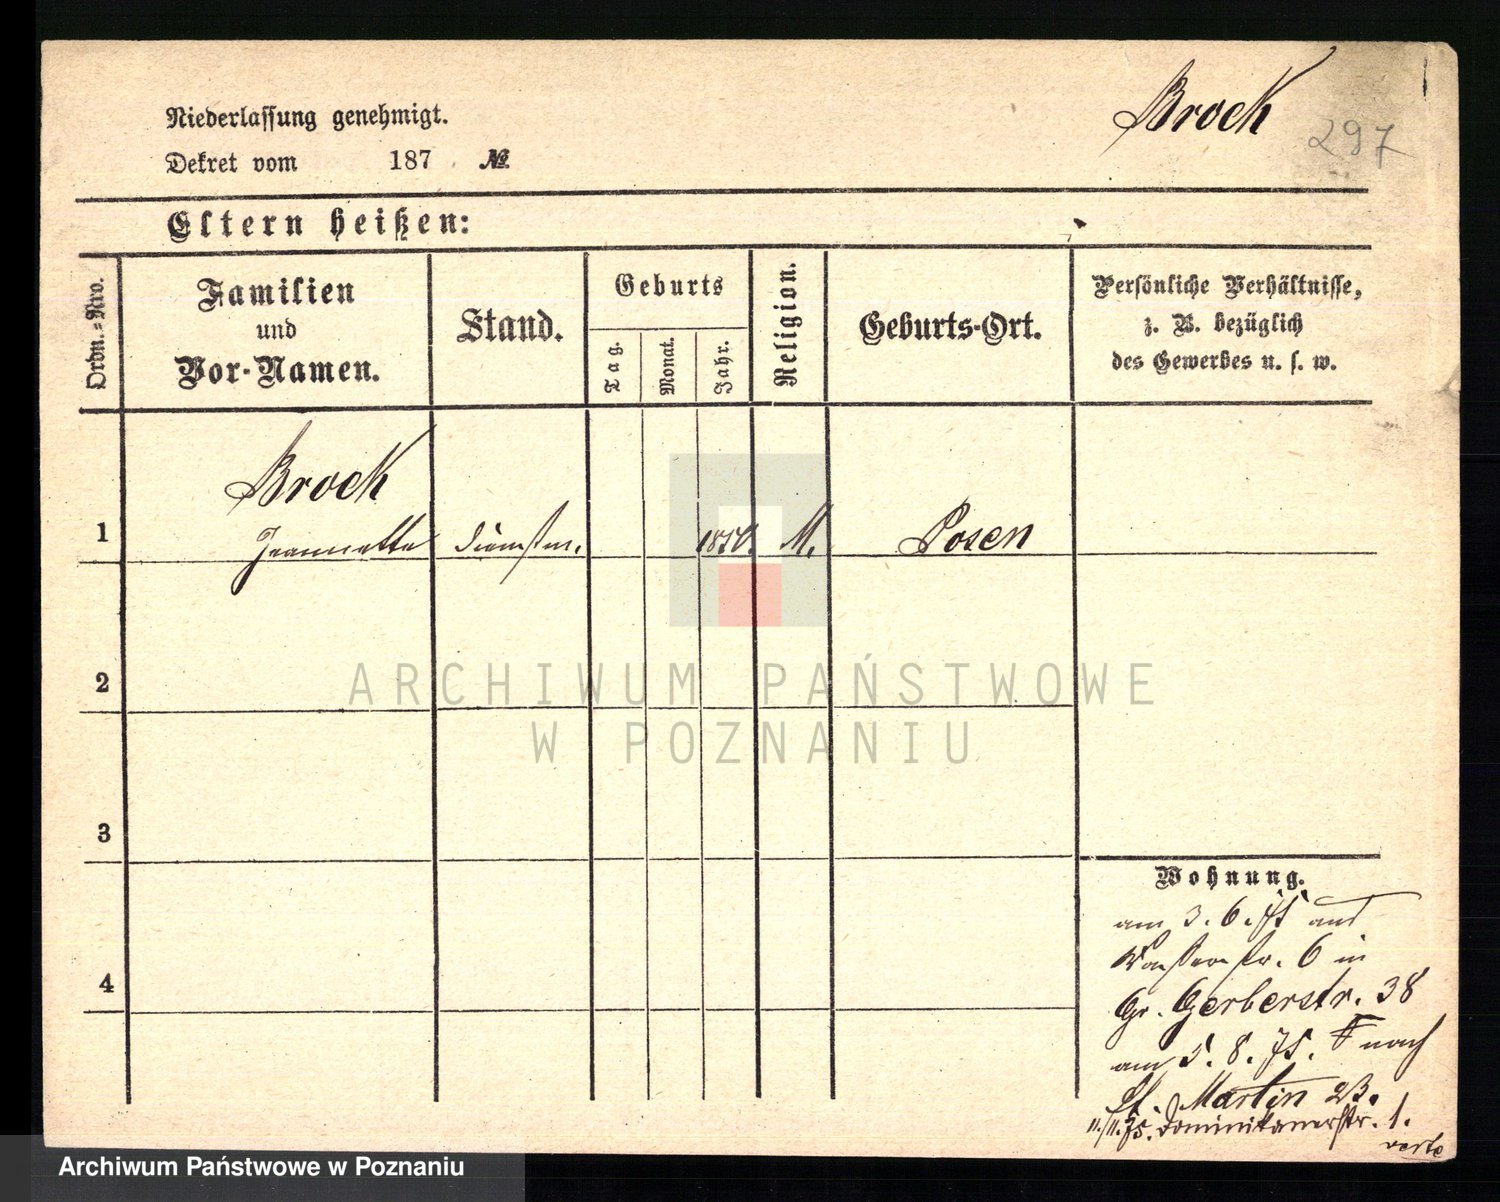 Brock
297
Niederlassung genehmigt.
Dekret vom 187 №
Eltern heißen:
Ordn.=Nro.
Familien
und
Vor-Namen.
Stand.
Geburts
Tag.
Monat.
Jahr.
Religion.
Geburts-Ort.
Persönliche Verhältnisse,
z. B. bezüglich
des Gewerbes u. s. w.
1
Brock
Jeannette
Dienstm.
1850.
M.
Posen
2
3
4
Wohnung.
am 3. 6. 75 aus
Wasserstr. 6 in
Gr. Gerberstr. 38
am 5. 8. 75. nach
St. Martin 23.
11./11. 75. Dominikanerstr. 1.
verte
ARCHIWUM PAŃSTWOWE
W POZNANIU
Archiwum Państwowe w Poznaniu